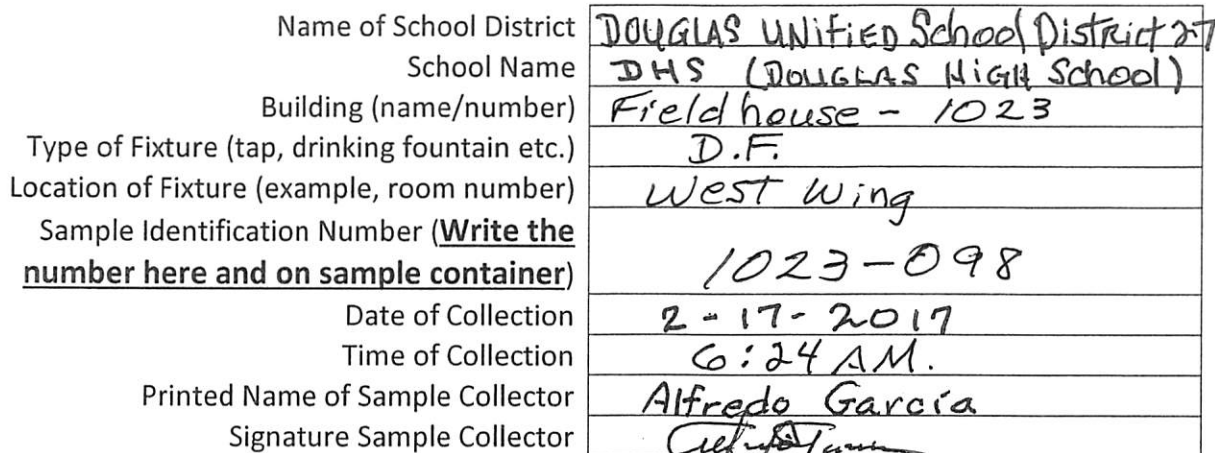 Name of School District DOUGLAS UNIFIED School District 27
School Name DHS (DOUGLAS HIGH School)
Building (name/number) Fieldhouse - 1023
Type of Fixture (tap, drinking fountain etc.) D.F.
Location of Fixture (example, room number) West Wing
Sample Identification Number (Write the
number here and on sample container) 1023-098
Date of Collection 2-17-2017
Time of Collection 6:24 AM.
Printed Name of Sample Collector Alfredo García
Signature Sample Collector